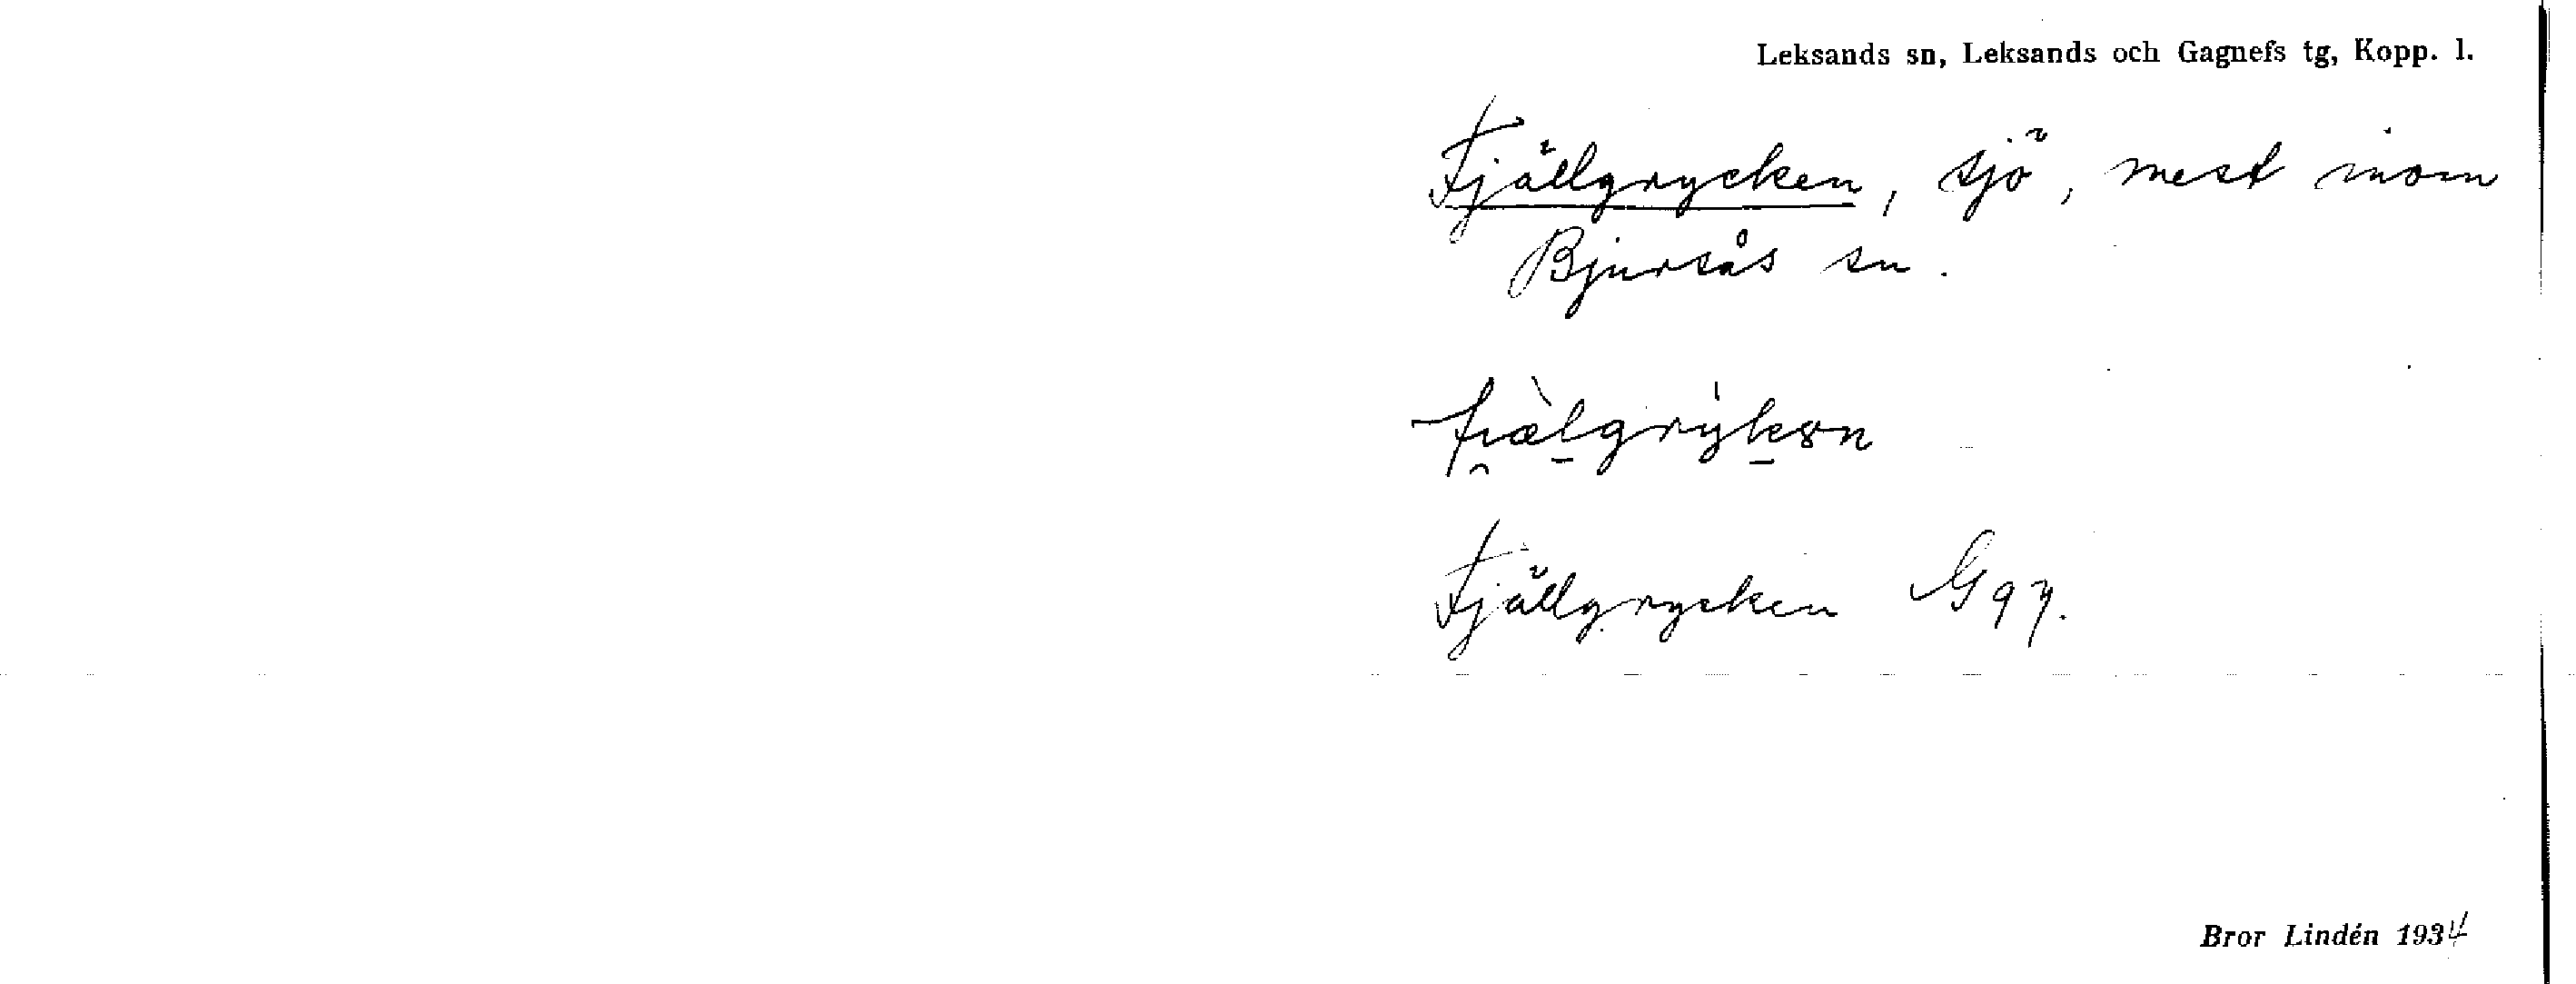 Leksands sn, Leksands och Gagnefs tg, Kopp. l.
Fjällgrycken, sjö, mest inom
Bjursås sn.
Fjällgrycken G97.
Bror Lindén 1934